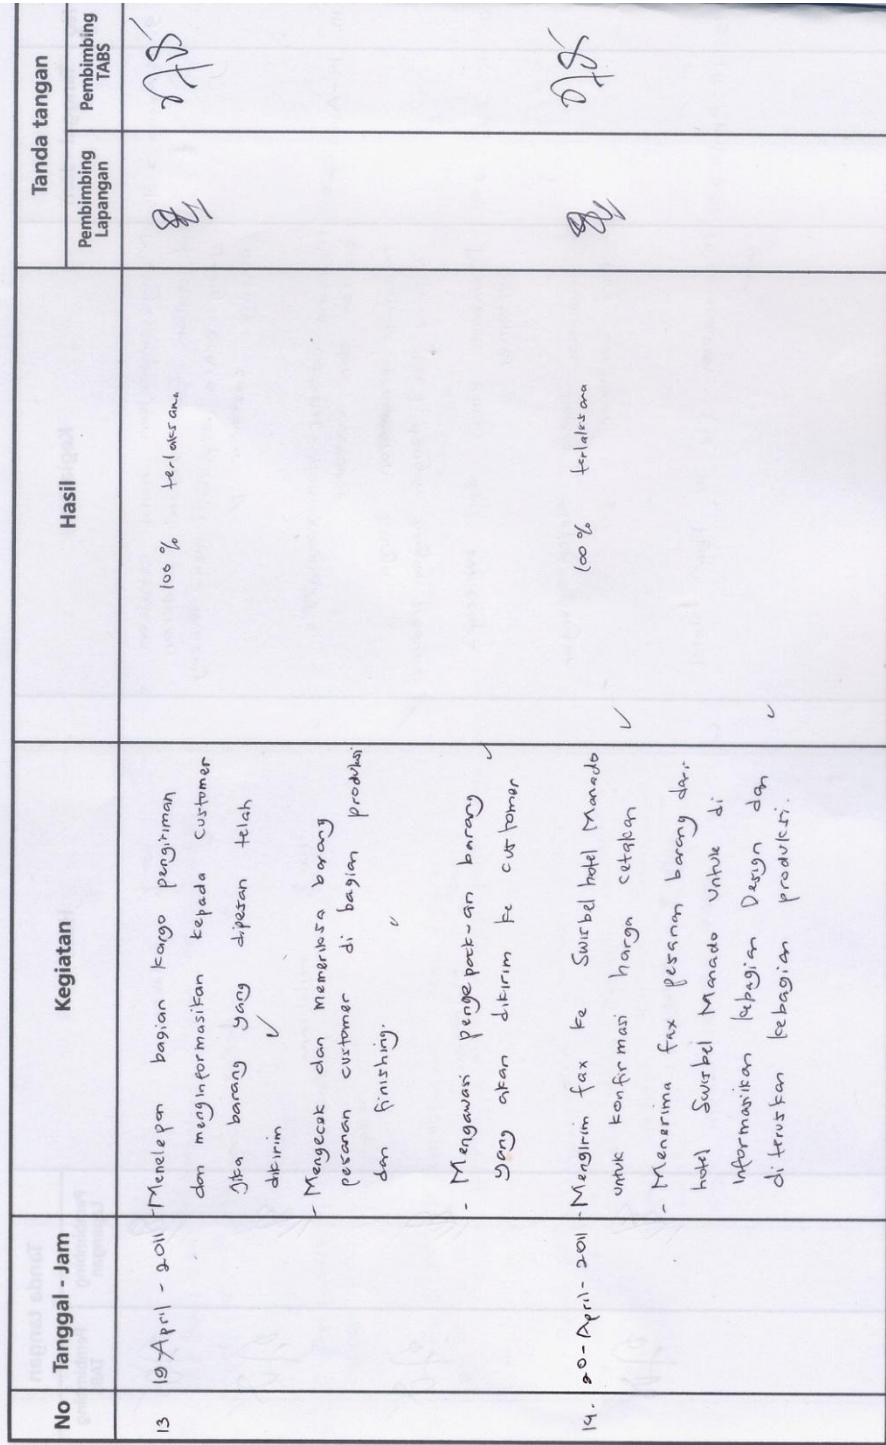 No
Tanggal - Jam
Kegiatan
Hasil
Tanda tangan
Pembimbing
Lapangan
Pembimbing
TABS
13
19 April - 2011
- Menelepon bagian kargo pengiriman
dan menginformasikan kepada customer
Jika barang yang dipesan telah
dikirim
- Mengecek dan memeriksa barang
pesanan customer di bagian produksi
dan finishing.
- Mengawasi pengepack-an barang
yang akan dikirim ke customer
100 % terlaksana
14.
20 - April - 2011
- Mengirim fax ke Swisbel hotel Manado
untuk konfirmasi harga cetakan
- Menerima fax pesanan barang dari
hotel Swisbel Manado untuk di
Informasikan kebagian Design dan
di teruskan kebagian produksi.
100 % terlaksana